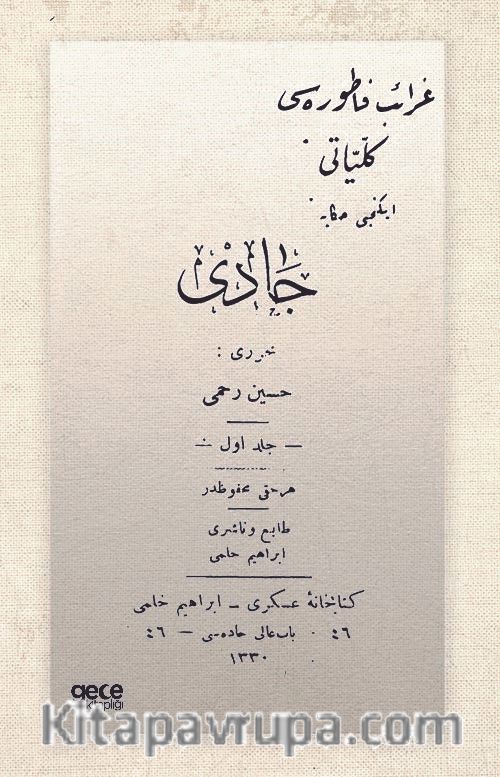 غرائب فاطوره‌سی
كلّیّاتی
ایكنجی حكایه
جادی
محرری :
حسین رحمی
— جلد اول —
هر حقی محفوظدر
طابع و ناشری
ابراهیم حلمی
كتابخانهٔ عسكری — ابراهیم حلمی
٤٦ باب عالی جاده‌سی — ٤٦
١٣٣٠
gece
kitaplığı
Kitapavrupa.com